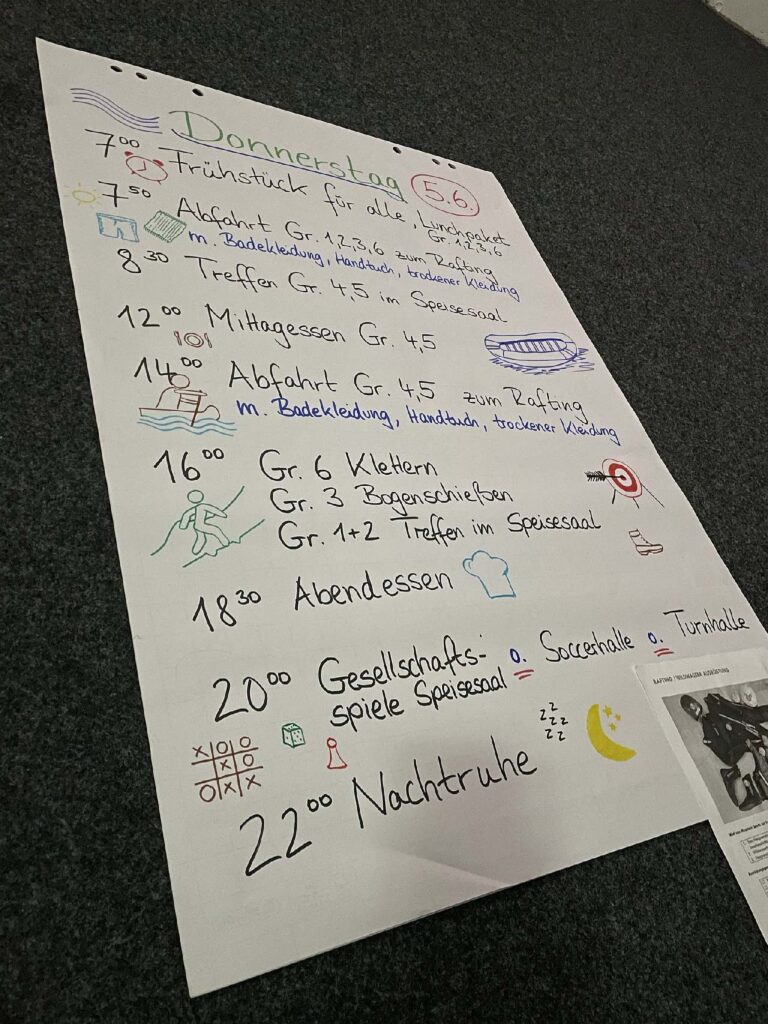 Donnerstag 5.6.
7⁰⁰ Frühstück für alle, Lunchpaket
Gr. 1,2,3,6
7⁵⁰ Abfahrt Gr. 1,2,3,6 zum Rafting
m. Badekleidung, Handtuch, trockener Kleidung
8³⁰ Treffen Gr. 4,5 im Speisesaal
12⁰⁰ Mittagessen Gr. 4,5
14⁰⁰ Abfahrt Gr. 4,5 zum Rafting
m. Badekleidung, Handtuch, trockener Kleidung
16⁰⁰ Gr. 6 Klettern
Gr. 3 Bogenschießen
Gr. 1+2 Treffen im Speisesaal
18³⁰ Abendessen
20⁰⁰ Gesellschafts- o. Soccerhalle o. Turnhalle
spiele Speisesaal
X O O
X O
O X X
z z
z z z
z z
22⁰⁰ Nachtruhe
RAFTING / WILDWASSER AUSRÜSTUNG